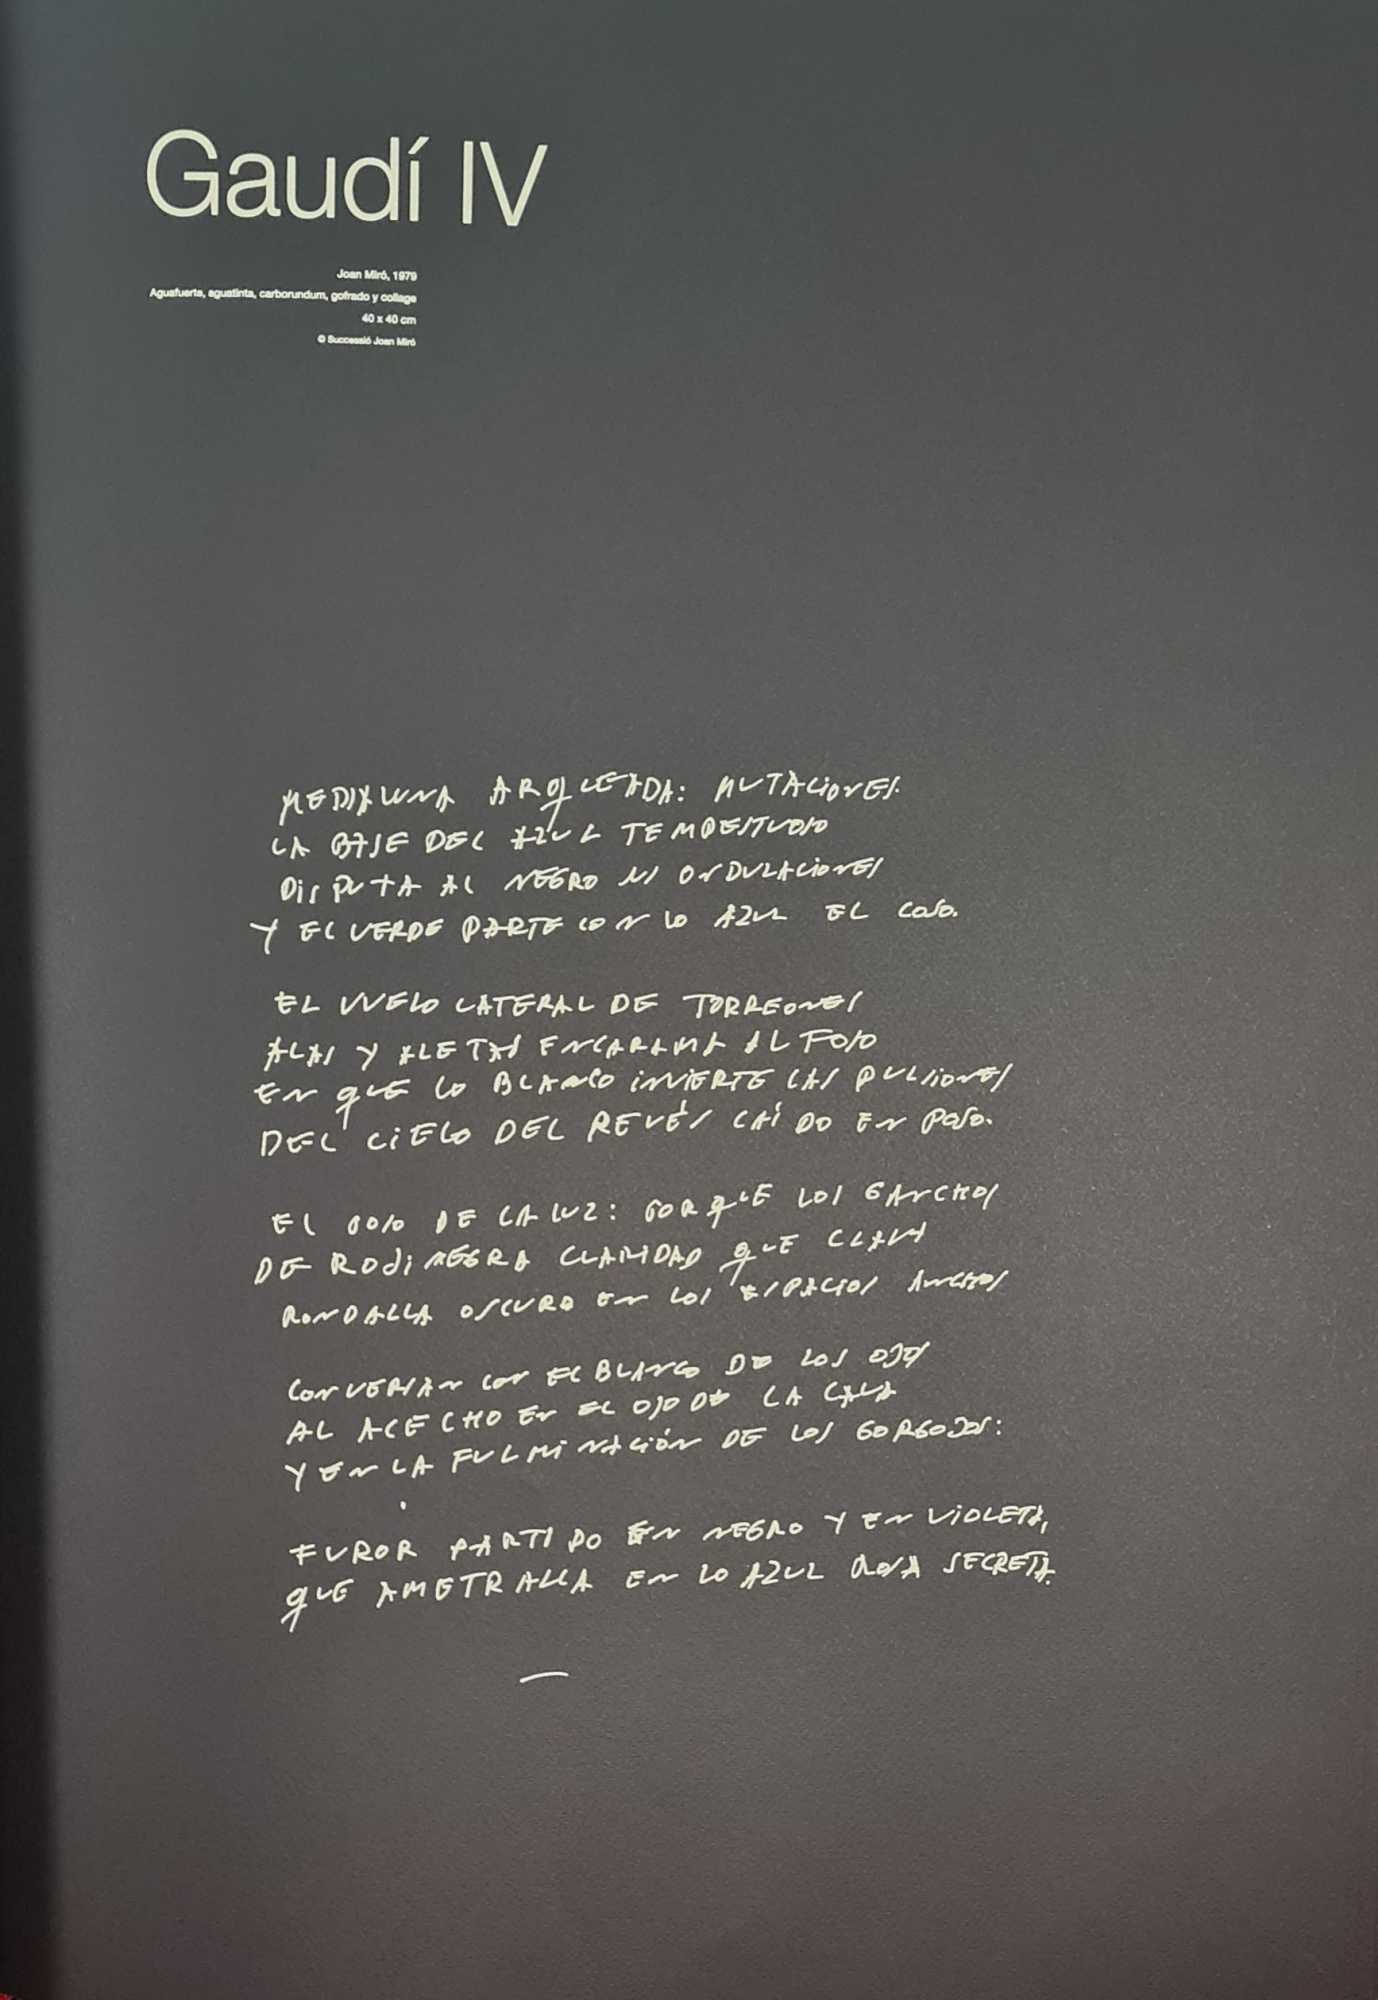 Gaudí IV
Joan Miró, 1979
Aguafuerte, aguatinta, carborundum, gofrado y collage
40 x 40 cm
© Successió Joan Miró
MEDIALUNA ARQUEADA: MUTACIONES.
LA BASE DEL AZUL TEMPESTUOSO
DISPUTA AL NEGRO SUS ONDULACIONES
Y EL VERDE PARTE CON LO AZUL EL COSO.
EL VUELO LATERAL DE TORREONES
ALAS Y ALETAS ENCARAMA AL FOSO
EN QUE LO BLANCO INVIERTE LAS PULSIONES
DEL CIELO DEL REVÉS CAÍDO EN POSO.
EL DE LA LUZ: PORQUE LOS GANCHOS
DE NEGRA CLARIDAD QUE CLAVAN
RONDALLA OSCURO EN LOS ESPACIOS ANCHOS
CONVERSAN CON EL BLANCO DE LOS OJOS
AL ACECHO EN EL OJO DE LA
Y EN LA FULMINACIÓN DE LOS GORGOJOS:
FUROR PARTIDO EN NEGRO Y EN VIOLETA,
QUE AMETRALLA EN LO AZUL ROSA SECRETA.